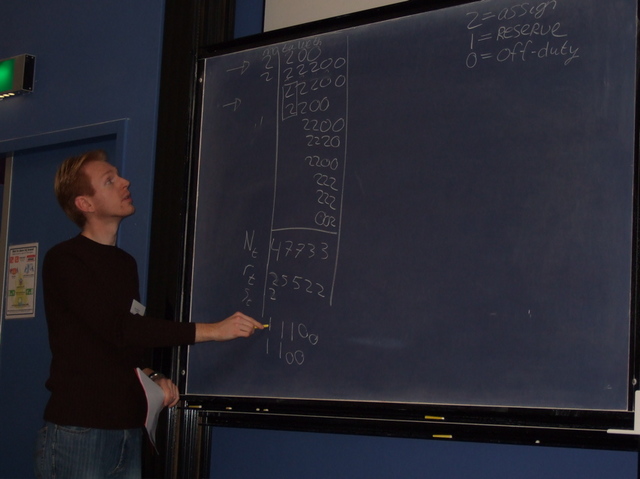 2 = assign
1 = RESERVE
0 = off-duty
→ 2 200
2 22200
22200
→ 2200
2200
2220
2200
222
222
002
Nt 47733
rt 25522
St 2
1 1 1 0 0
1 1 0 0